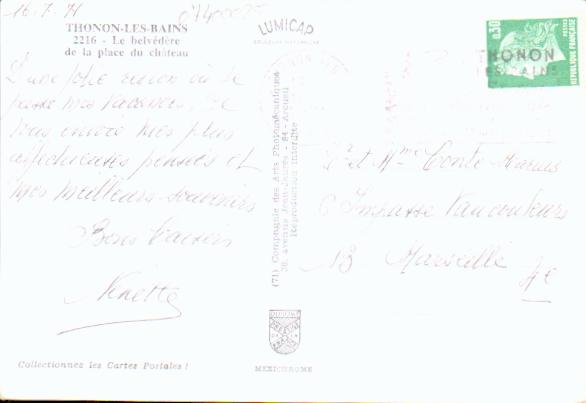 16.7.71
07400025
THONON-LES-BAINS
2216 - Le belvédère
de la place du château
LUMICAP
0,30
POSTES
REPUBLIQUE FRANÇAISE
THONON
LES BAINS
D'une jolie région où je
passe mes vacances, je
vous envoie mes plus
affectueuses pensées et
mes meilleurs souvenirs
Bons baisers
Nénette
(71) Compagnie des Arts Photomécaniques
38, avenue Jean-Jaurès - 94 - Arcueil
Reproduction interdite
et Mme Conte Marius
6 Impasse Vaucouleurs
13 Marseille
Collectionnez les Cartes Postales !
MEXICHROME